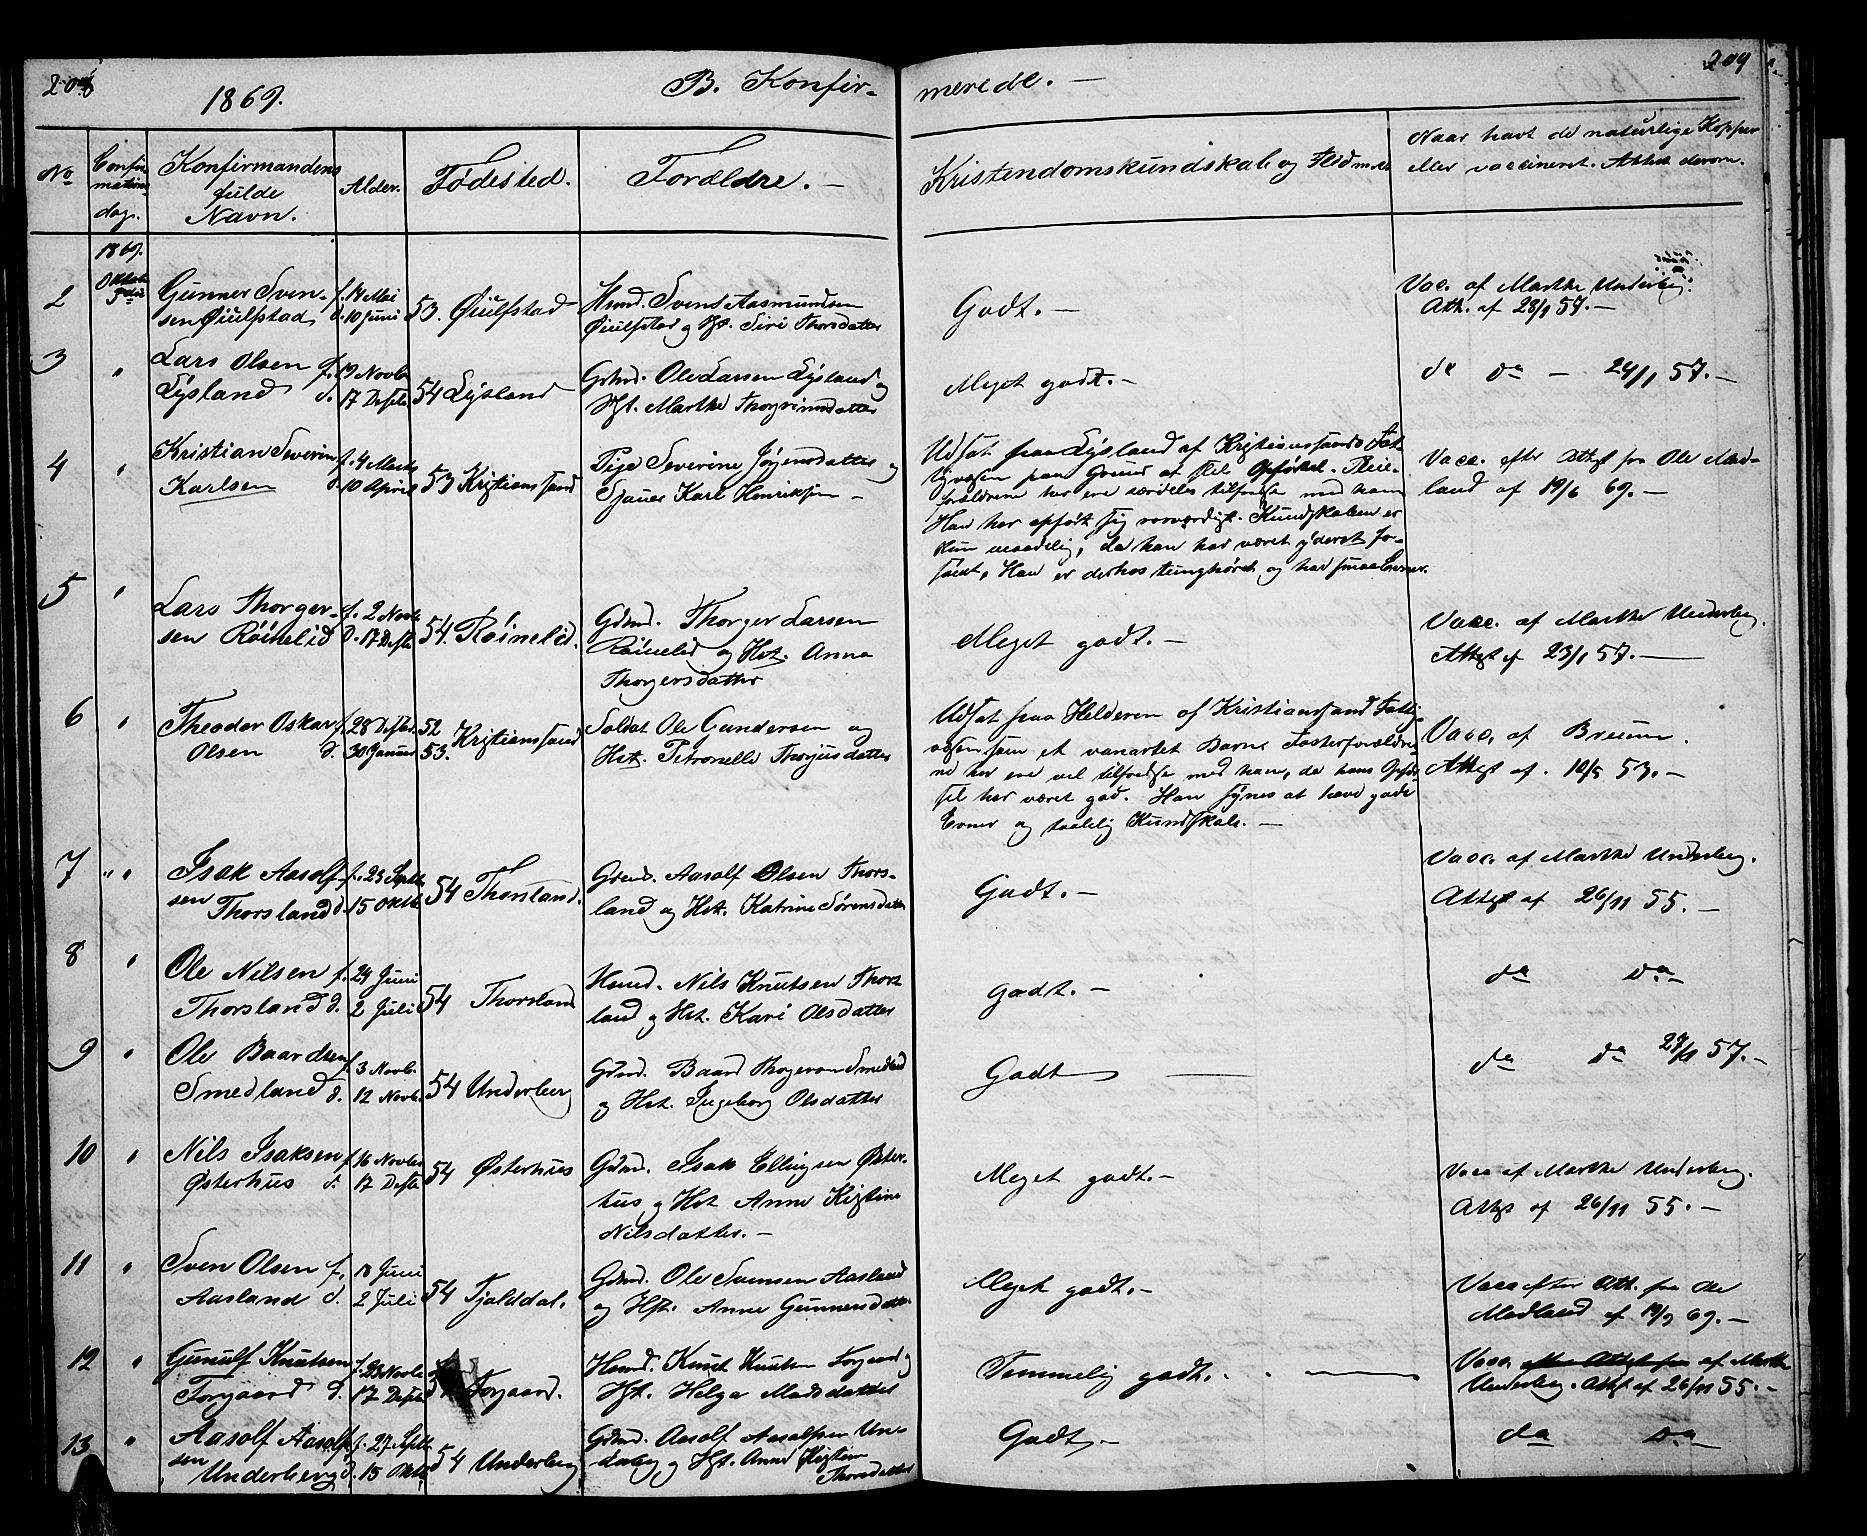 208
1869.
B. Konfir-
merede. —
209
No
Confir-
mations
dag.
Konfirmandens
fulde
Navn.
Alder.
Fødested.
Forældre. —
Kristendomskundskab og Flid m.m.
Naar havt de naturlige Kopper
eller vaccineret. Attest derom.
1869.
2
Gunner Sven- f. 14 Mai 53. Øiulfstad
sen Øiulfstad d. 10 Juni
Hmd. Svent Aasmundsen
Øiulfstad og Hst. Siri Thorsdatter
Godt. —
Vac. af Marthe Underberg.
Att. af 28/1 57. —
3 "
Lars Olsen f. 19 Novbr
Lysland d. 17 Desbr 54 Lysland
Gdmd. Ole Larsen Lysland og
Hst. Marthe Thorgrimsdatter
Meget godt. —
do do — 24/1 57. —
4 "
Kristian Severin f. 4 Marts
Karlsen d. 10 April 53 Kristianssand
Pige Severine Jørgensdatter og
Sjauer Karl Henriksen —
Udsat paa Lysland af Kristianssands Fat-
tigvæsen paa Grund af slet Opførsel. Pleie-
forældrene har ere særdeles tilfredse med ham
Han har opført sig rosværdigt. Kundskaben er
kun maadelig, da han har været yderst for-
sømt. Han er derhos tunghørt og har smaa Evner.
Vacc. efter Attest fra Ole Mad-
land af 19/6 69. —
5 "
Lars Thorger- f. 2 Novbr
sen Røinelid d. 17 Desbr 54. Røinelid.
Gdmd. Thorger Larsen
Røinelid og Hst. Anna
Thorgersdatter
Meget godt. —
Vacc. af Marthe Underberg.
Attest af 23/1 57. —
6 "
Theodor Oskar f. 28 Desbr. 52
Olsen d. 30 Januar 53. Kristianssand
Soldat Ole Gundersen og
Hst. Petronelle Thorjusdatter
Udsat paa Helderen af Kristianssand Fattig-
væsen som et vanartet Barn. Fosterforældre-
ne har ere vel tilfredse med ham, da hans Opfør-
sel har været god. Han synes at have gode
Evner og taalelig Kundskab. —
Vacc. af Breum.
Attest af 10/5 53. —
7 " "
Isak Aasolf- f. 23 Septbr
sen Thorsland d. 15 Oktbr 54 Thorsland.
Gdmd. Aasolf Olsen Thors-
land og Hst. Katrine Sørensdatter
Godt. —
Vacc. af Marthe Underberg.
Attest af 26/11 55. —
8 "
Ole Nilsen f. 24 Juni
Thorsland d. 2 Juli 54 Thorsland
Hmd. Nils Knutsen Thors-
land og Hst. Kari Olsdatter
Godt. —
do do —
9 "
Ole Baardsen f. 3 Novbr.
Smedland d. 12 Novbr. 54 Underberg
Gdmd. Baard Thorgersen Smedland
og Hst. Ingeborg Olsdatter
Godt —
do do 27/1 57. —
10 "
Nils Isaksen f. 16 Novbr
Østerhus d. 17 Desbr 54 Østerhus
Gdmd. Isak Ellingsen Øster-
hus og Hst Anne Kristine
Nilsdatter. —
Meget godt. —
Vacc af Marthe Underberg.
Attest af 26/11 55. —
11 "
Sven Olsen f. 18 Juni
Aasland d. 2 Juli 54 Fjalddal.
Gdmd. Ole Svensen Aasland
og Hst. Anne Gunnersdatter
Meget godt. —
Vacc efter Att. fra Ole
Madland af 19/9 69. —
12 "
Gunulf Knutsen f. 23 Novbr
Forgaard d. 17 Desbr Forgaard.
Hmd. Knut Knutsen Forgaard og
Hst. Helga Madsdatter
Temmelig godt. —
Vacc. efter Attest fra af Marthe
Underberg. Attest af 26/11 55. —
13 "
Aasolf Aasolf- f. 27 Septbr
sen Underberg d. 15 Oktbr 54 Underberg
Gdmd. Aasolf Aasolfsen Un-
derberg og Hst. Anne Kristine
Thorsdatter
Godt. —
do do —